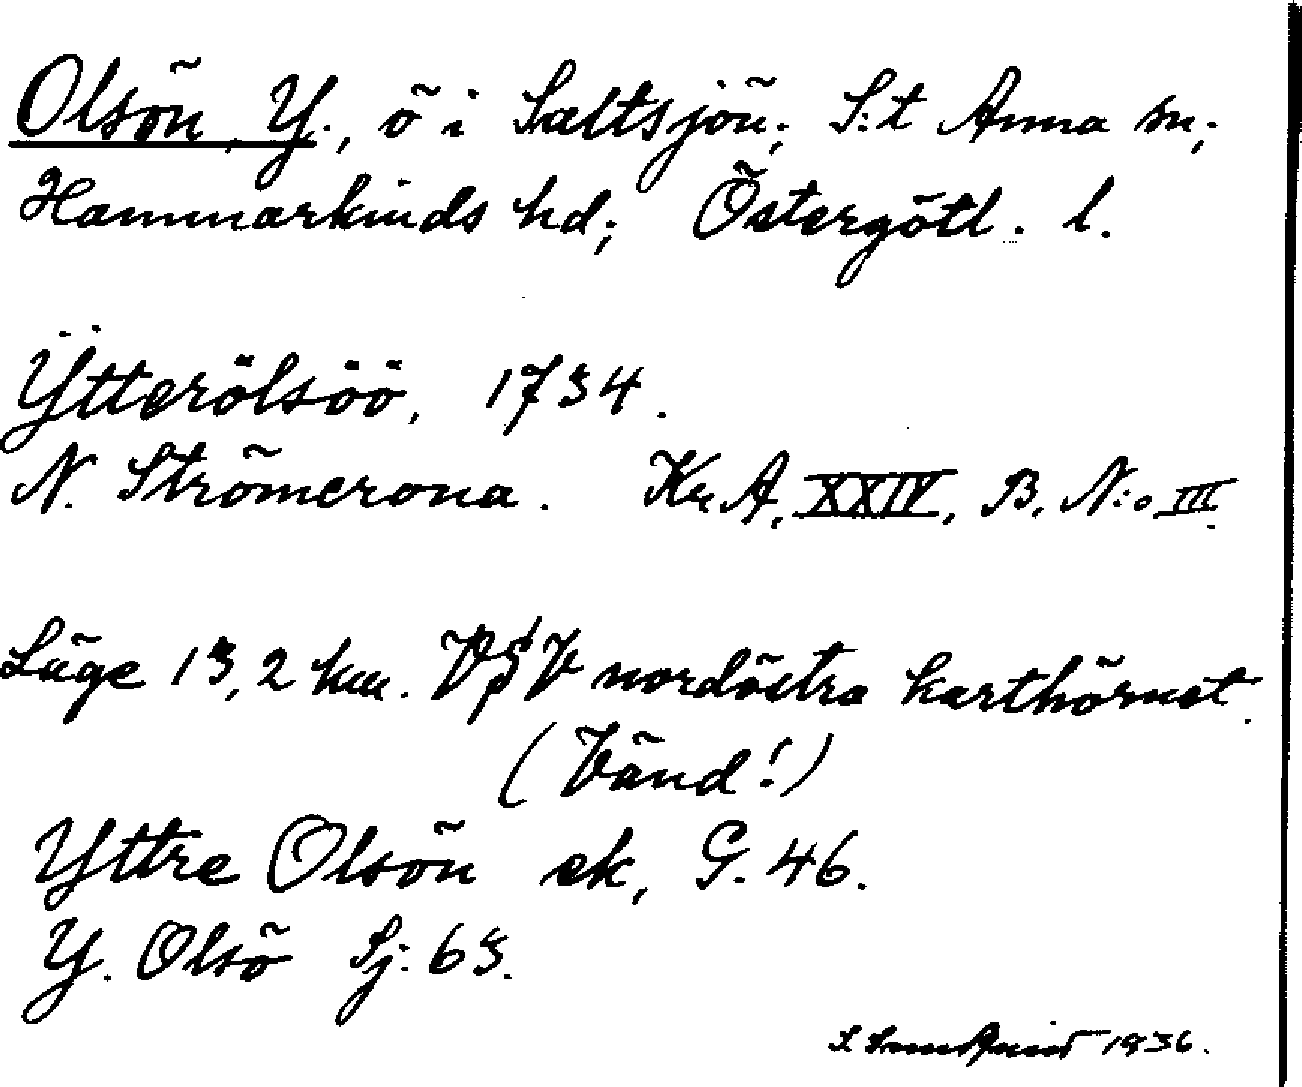 Olsön, Y., ö i Saltsjön; S:t Anna sn;
Hammarkinds hd; Östergötl. l.
Ytterölsöö, 1734.
N. Strömcrona. Kr. A. XXIV, B. N:o III.
Läge 13,2 km. VSV nordöstra karthörnet.
(Vänd!)
Yttre Olsön ek, G. 46.
Y. Olsö Sj: 63.
S 1936.